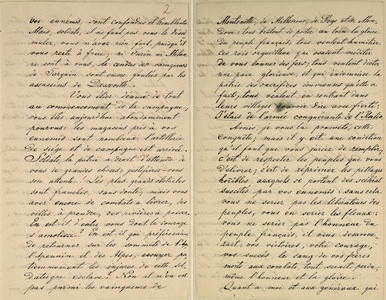 2
vos ennemis sont confondus et tremblants
Mais, soldats, il ne faut pas vous le dissi-
muler, vous n'avez rien fait, puisqu'il
vous reste à faire, ni Turin ni Milan
ne sont à vous, les cendres des vainqueurs
de Tarquin sont encore foulées par les
assassins de Basseville.
Vous étiez dénués de tout
au commencement de la campagne,
vous êtes aujourd'hui abondamment
pourvus; les magasins pris à vos
ennemis sont nombreux l'artillerie
de siège et de campagne est arrivée.
Soldats, la patrie a droit d'attendre de
vous de grandes choses; justifierez-vous
son attente? Les plus grands obstacles
sont franchis, sans doute; mais vous
avez encore des combats à livrer, des
villes à prendre, des rivières à passer.
En est-il d'entre vous dont le courage
s'amollisse? En est-il qui préféreraient
de retourner sur les sommets de l'A-
pennin et des Alpes, essuyer pa-
tiemment les injures de cette sol-
datesque esclave? Non, il n'en est
pas parmi les vainqueurs de
Montenotte, de Millesimo, de Dego et de Mon-
dovi. Tous brûlent de porter au loin la gloire
du peuple français, tous veulent humilier
ces rois orgueilleux qui osaient méditer
de vous donner des fers; tous veulent dicter
une paix glorieuse, et qui indemnise la
patrie des sacrifices immenses qu'elle a
faits, tous veulent en rentrant dans
leurs villages pouvoir dire avec fierté:
J'étais de l'armée conquérante de l'Italie.
Amis, je vous la promets, cette
conquête, mais il y est une condition
qu'il faut que vous juriez de remplir;
c'est de respecter les peuples que vous
délivrez, c'est de réprimer des pillages
horribles auxquels se portent des scélérats
suscités par vos ennemis; sans cela
vous ne seriez pas les libérateurs des
peuples, vous en seriez les fléaux;
vous ne seriez pas l'honneur du
peuple français, il vous désavoue-
rait, vos victoires, votre courage,
vos succès, le sang de nos frères
morts aux combats, tout serait perdu,
même l'honneur et la gloire.
Quant à moi et aux généraux qui